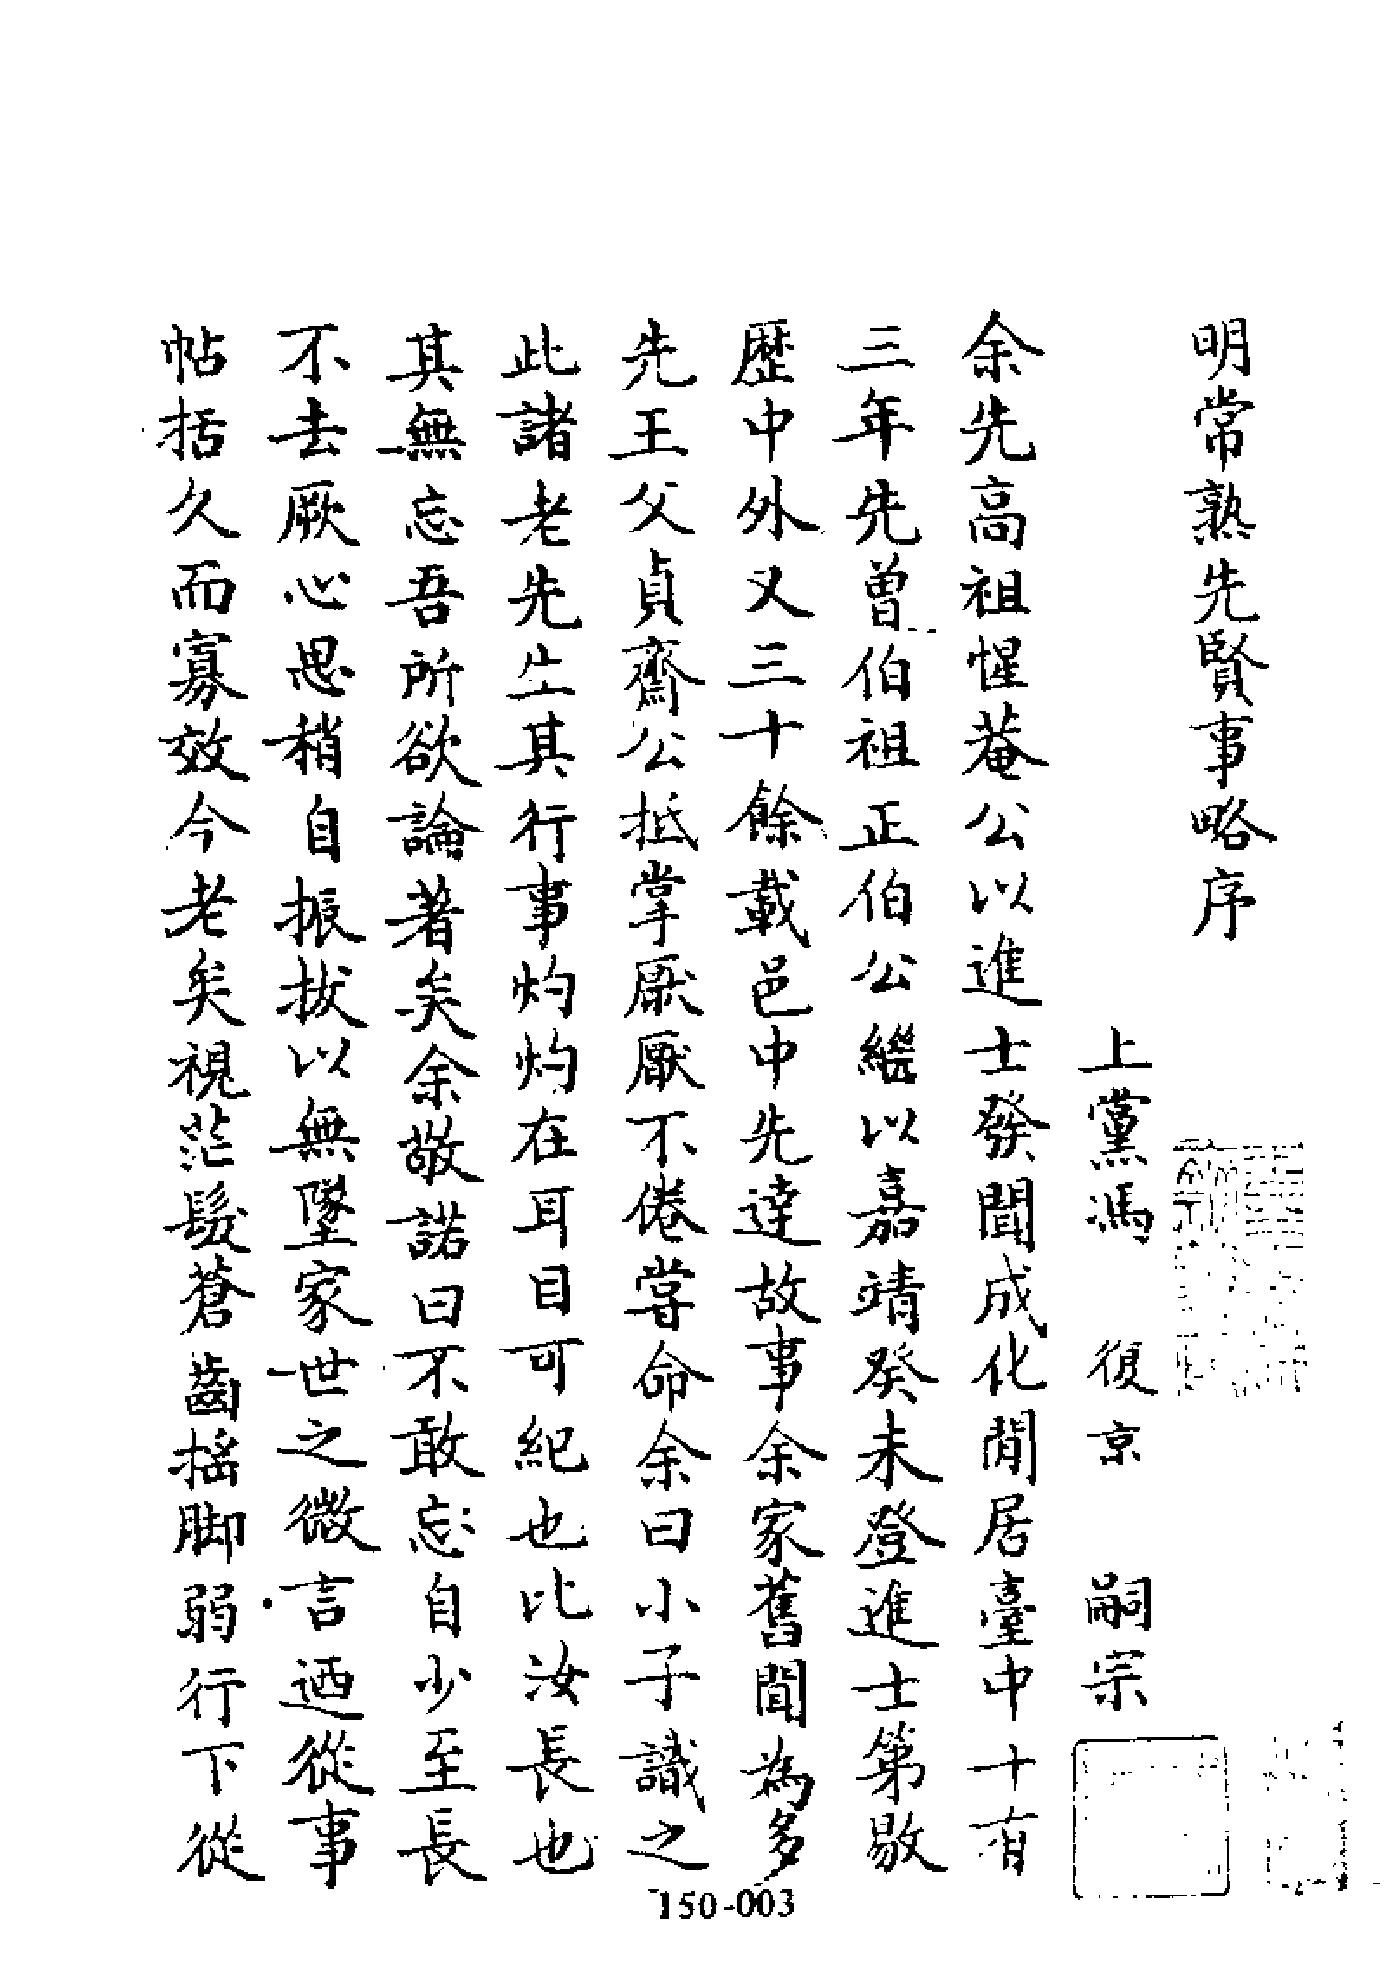 明常熟先賢事略序
上黨馮 復京 嗣宗
余先高祖惺菴公以進士發聞成化間居臺中十有
三年先曾伯祖正伯公繼以嘉靖癸未登進士第敭
歷中外又三十餘載邑中先達故事余家舊聞為多
先王父貞齋公抵掌厭厭不倦嘗命余曰小子識之
此諸老先生其行事灼灼在耳目可紀也比汝長也
其無忘吾所欲論著矣余敬諾曰不敢忘自少至長
不去厥心思稍自振拔以無墜家世之微言迺從事
帖括久而寡效今老矣視茫髮蒼齒搖脚弱行下從
150-003